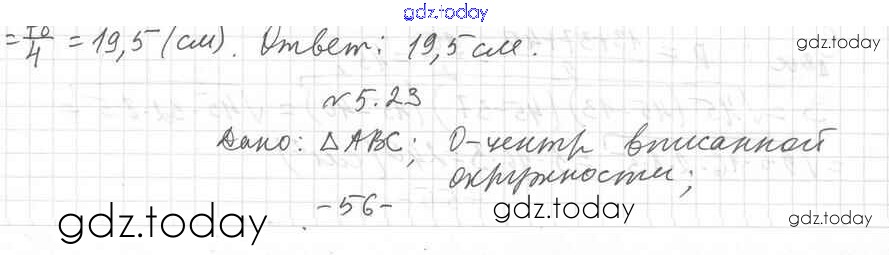 gdz.today
= 78/4 = 19,5 (см). Ответ: 19,5 см.
gdz.today
№ 5.23
Дано: △ABC; O-центр вписанной
окружности;
-56-
gdz.today
gdz.today
gdz.today